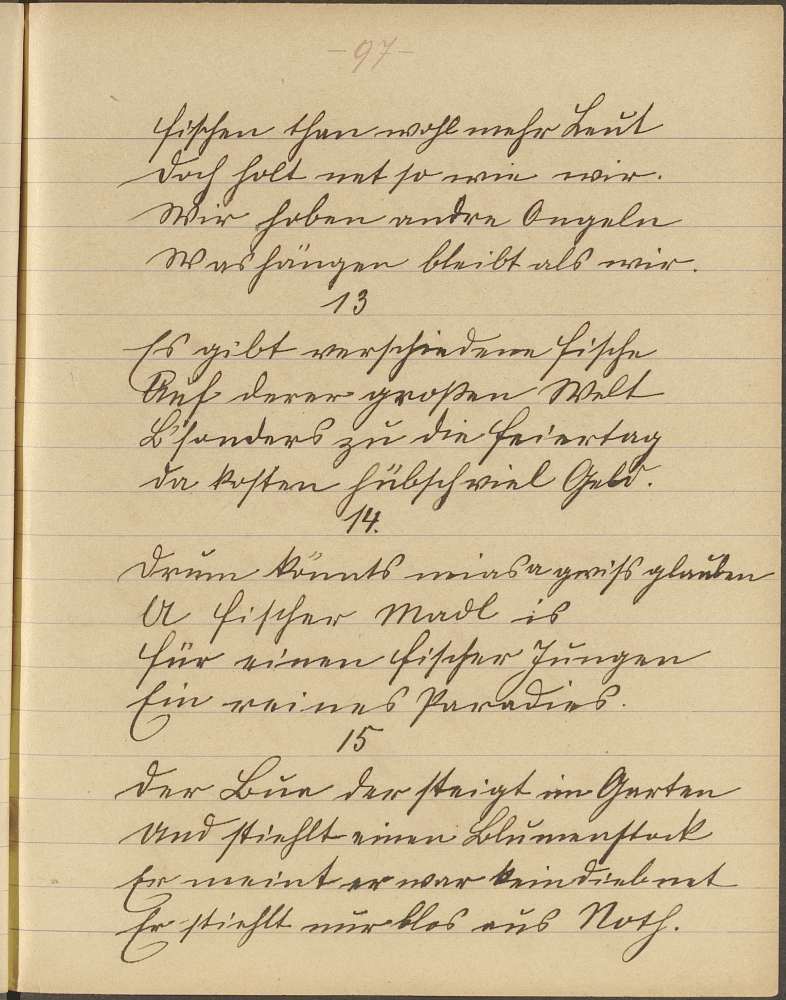 -97-
fischen than wohl mehr Leut
Doch holt net so wie wir.
Wir haben andre Angeln
Was hängen bleibt als wir.
13
Es gibt verschiedene Fische
Auf derer großen Welt
B'sonders zu die Feiertag
da kosten hübsch viel Geld.
14.
Drum könnts mias a gwiß glauben
A Fischer Madl is
für einen Fischer Jungen
Ein reines Paradies.
15
Der Bua der steigt im Garten
Und stiehlt einen Blumenstock
Er meint er war kein dieb net
Er stiehlt nur blos aus Noth.